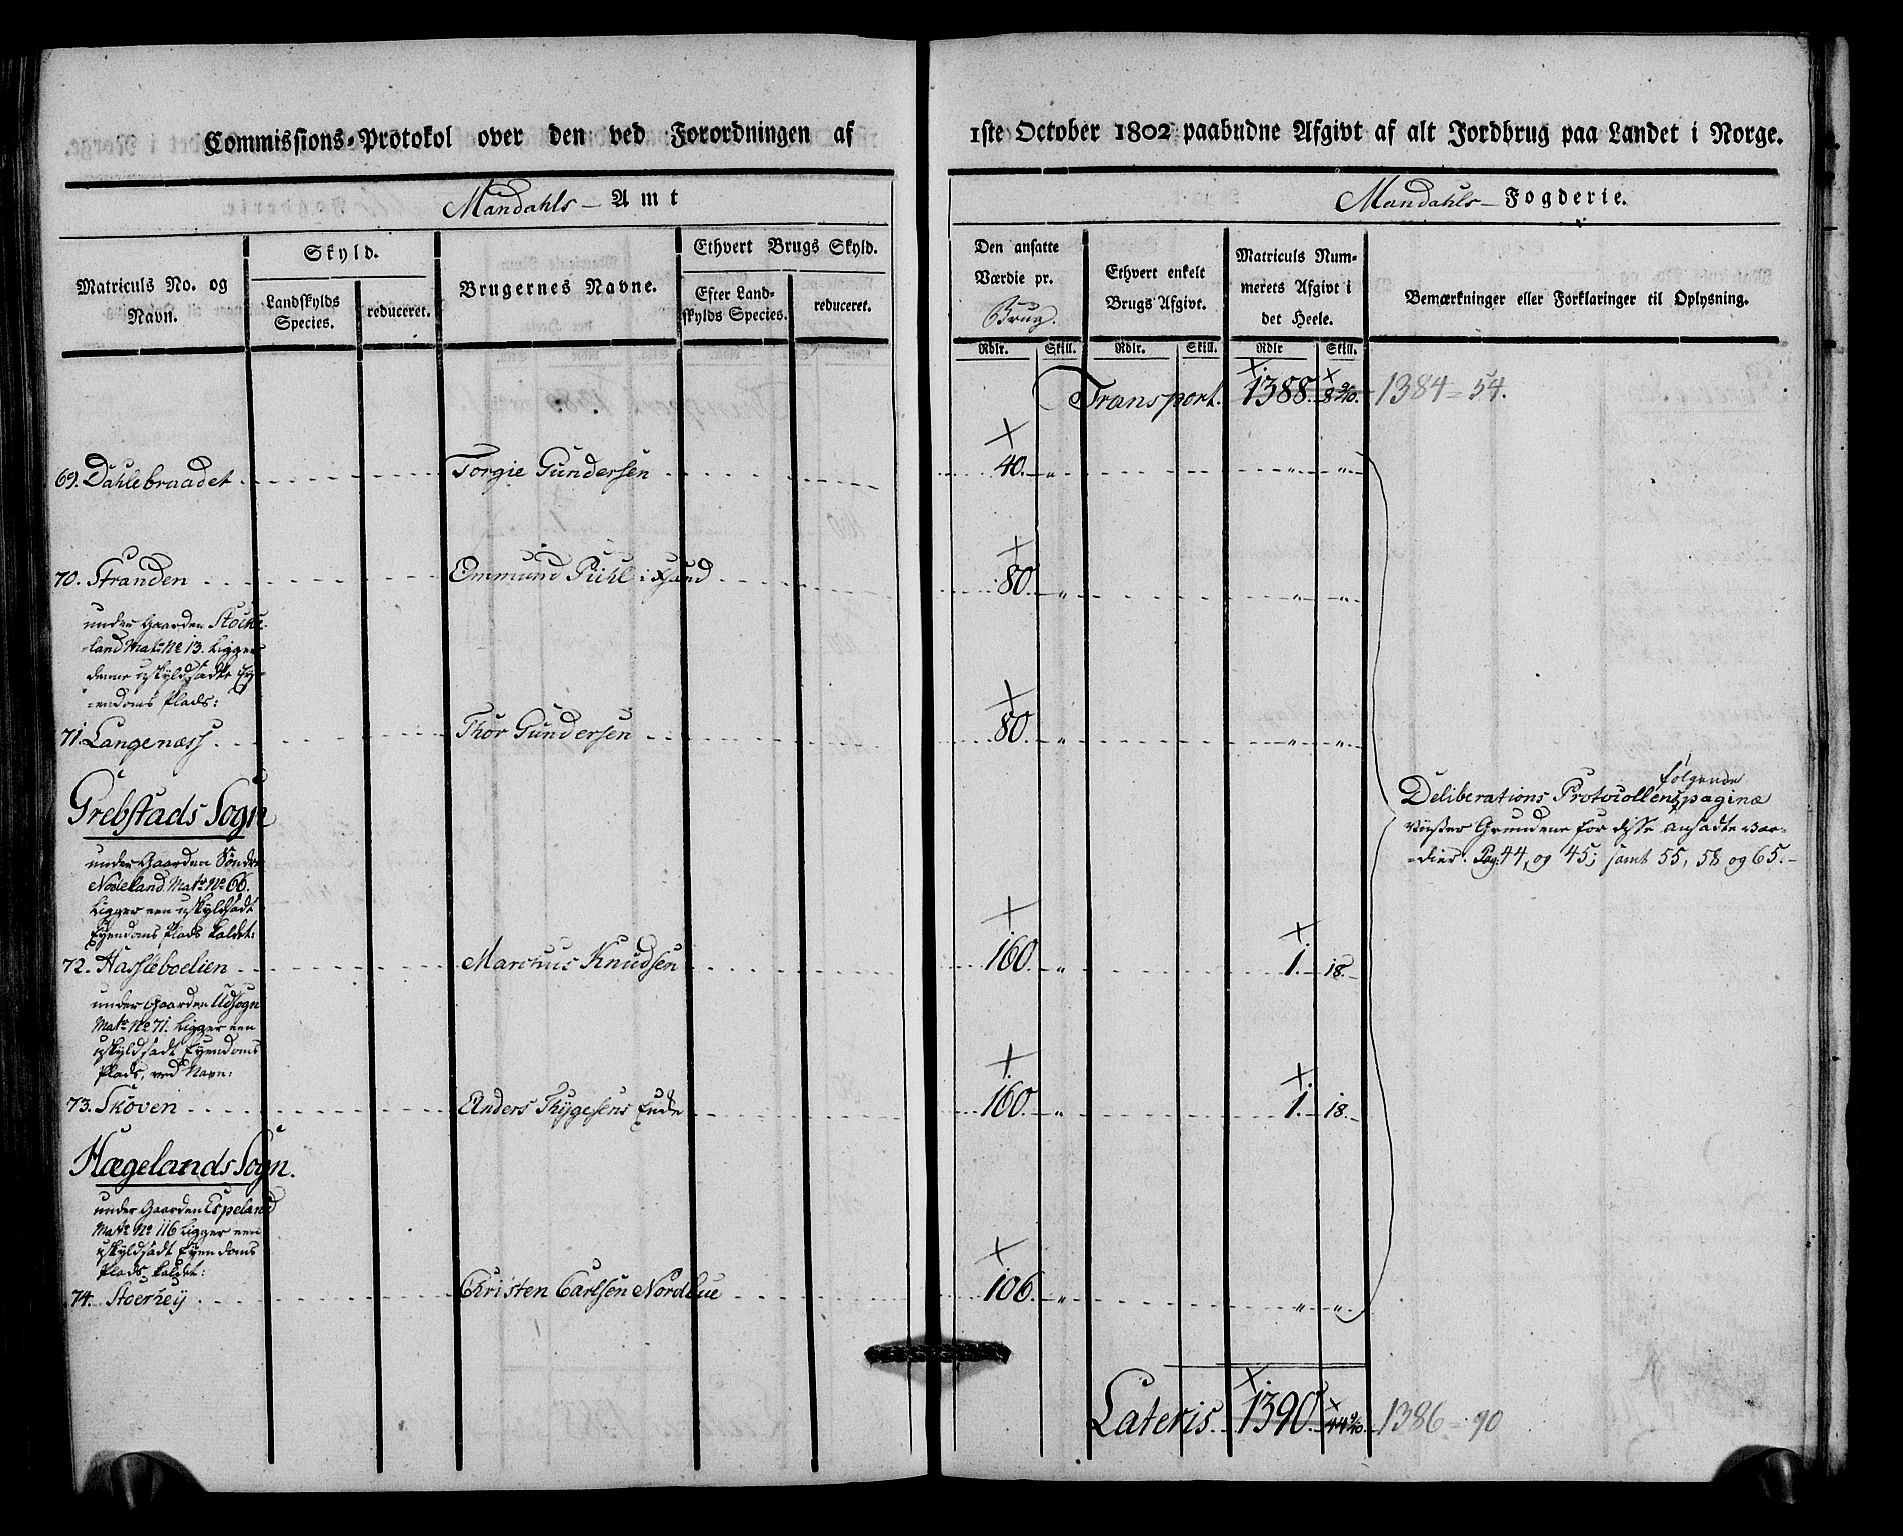 Commissions-Protokol over den ved Forordningen af
1ste October 1802 paabudne Afgivt af alt Jordbrug paa Landet i Norge.
Mandahls- Amt
Mandahls- Fogderie.
Matriculs No. og Navn.
Skyld.
Landskylds Species.
reduceret.
Brugernes Navne.
Ethvert Brugs Skyld.
Efter Landskylds Species.
reduceret.
Den ansatte Værdie pr. Brug.
Ethvert enkelt Brugs Afgivt.
Matriculs Nummerets Afgivt i det Heele.
Bemærkninger eller Forklaringer til Oplysning.
Rdlr. Skill. Rdlr. Skill. Rdlr Skill.
Transport. 1388. 8 9/10. 1384 = 54.
69. Dahlebraadet Torgie Gundersen 40. „ „ „
70. Stranden Emmund Pühl i Xsand 80. „ „ „
under Gaarden Stock-
-land Matr: No 13. Ligger
denne uskyldsadte Ey-
-endoms Plads:
71. Langenæss Thor Gundersen 80. „ „ „
Grebstads Sogn
følgende
Deliberations Protocollens paginæ
viiser Grundene for disse ansadte vær-
-dier. Pag: 44, og 45, samt 55, 58 og 65.-
under Gaarden Søndre
Nodeland Matr No 66.
Ligger een uskyldsadt
Eyendoms Plads kaldet:
72. Hassleboelien Marcuus Knudsen 160. „ 1. 18.
under Gaarden Udsogn
Matr No 71. Ligger een
uskyldsadt Eyendoms
Plads, ved Navn:
73. Skoven Anders Thygesens Enke 160. „ 1. 18.
Hægelands Sogn.
under Gaarden Espeland
Matr No 116 Ligger een
uskyldsadt Eyendoms
Plads, kaldet:
74. Stoerhey Christen Carlsen Nordbue 106. „ „ „
Lateris. 1390. 44 9/10. 1386 = 90